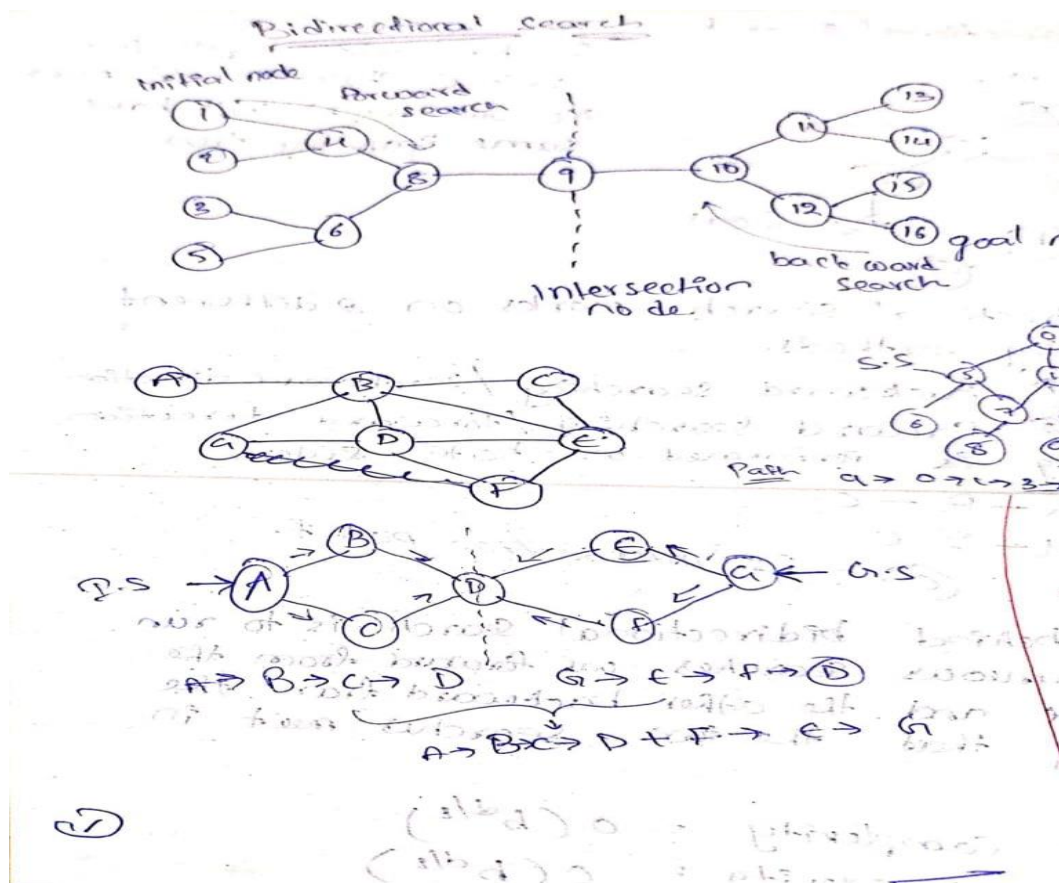 Bidirectional Search
Initial node
forward
search
1
4
2
8
3
6
5
9
10
11
13
14
12
15
16
goal
back ward
search
Intersection
node
A
B
C
G
D
E
F
S.S
6
7
8
Path
9 → 0 → 1 → 3 →
I.S
A
B
C
D
E
F
G
G.S
A → B → C → D G → E → F → D
A → B → C → D + F → E → G